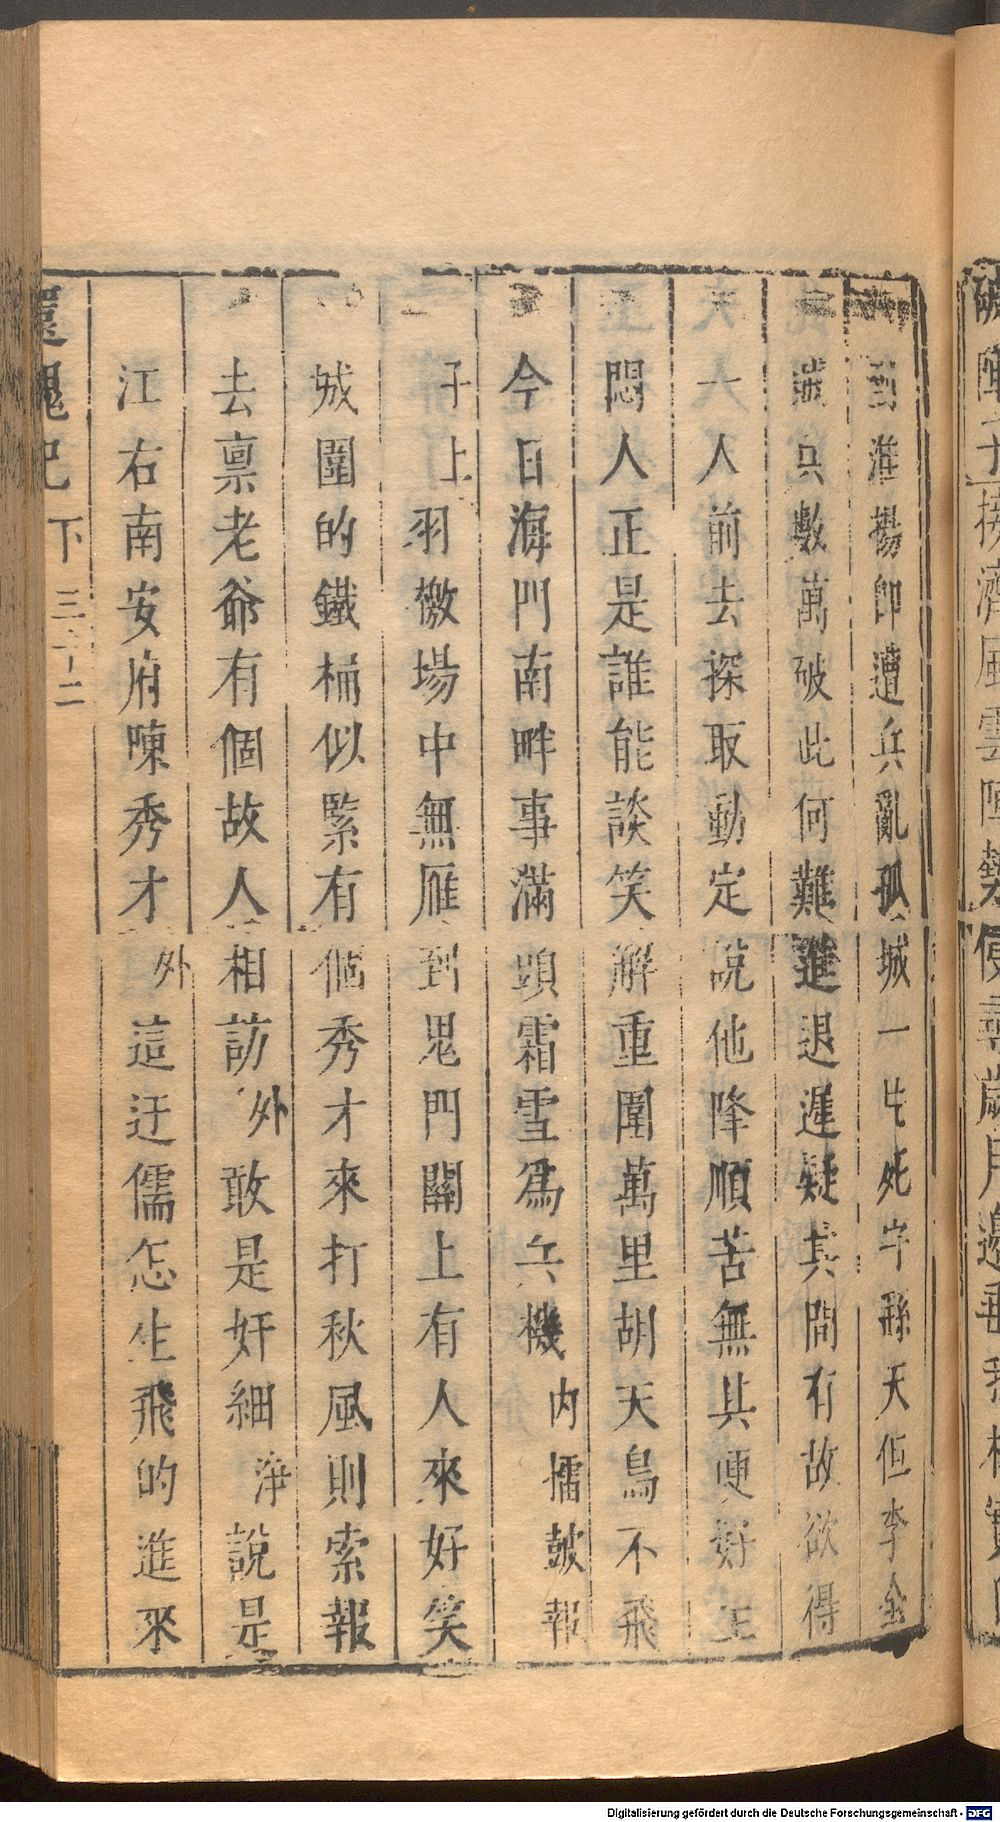 到淮揚卽遭兵亂孤城一片死守孫天但李全
兵數萬破此何難進退遲疑其間有故欲得
一人前去探取動定說他降順苦無其便好生
悶人正是誰能談笑解重圍萬里胡天鳥不飛
今日海門南畔事滿頭霜雪爲兵機 內擂鼓報
子上 羽檄場中無雁到鬼門關上有人來好笑
城圍的鐵桶似緊有個秀才來打秋風則索報
去禀老爺有個故人相訪 外 敢是奸細 淨 說是
江右南安府陳秀才 外 這迂儒怎生飛的進來
還魂記 下 三十二
Digitalisierung gefördert durch die Deutsche Forschungsgemeinschaft - DFG